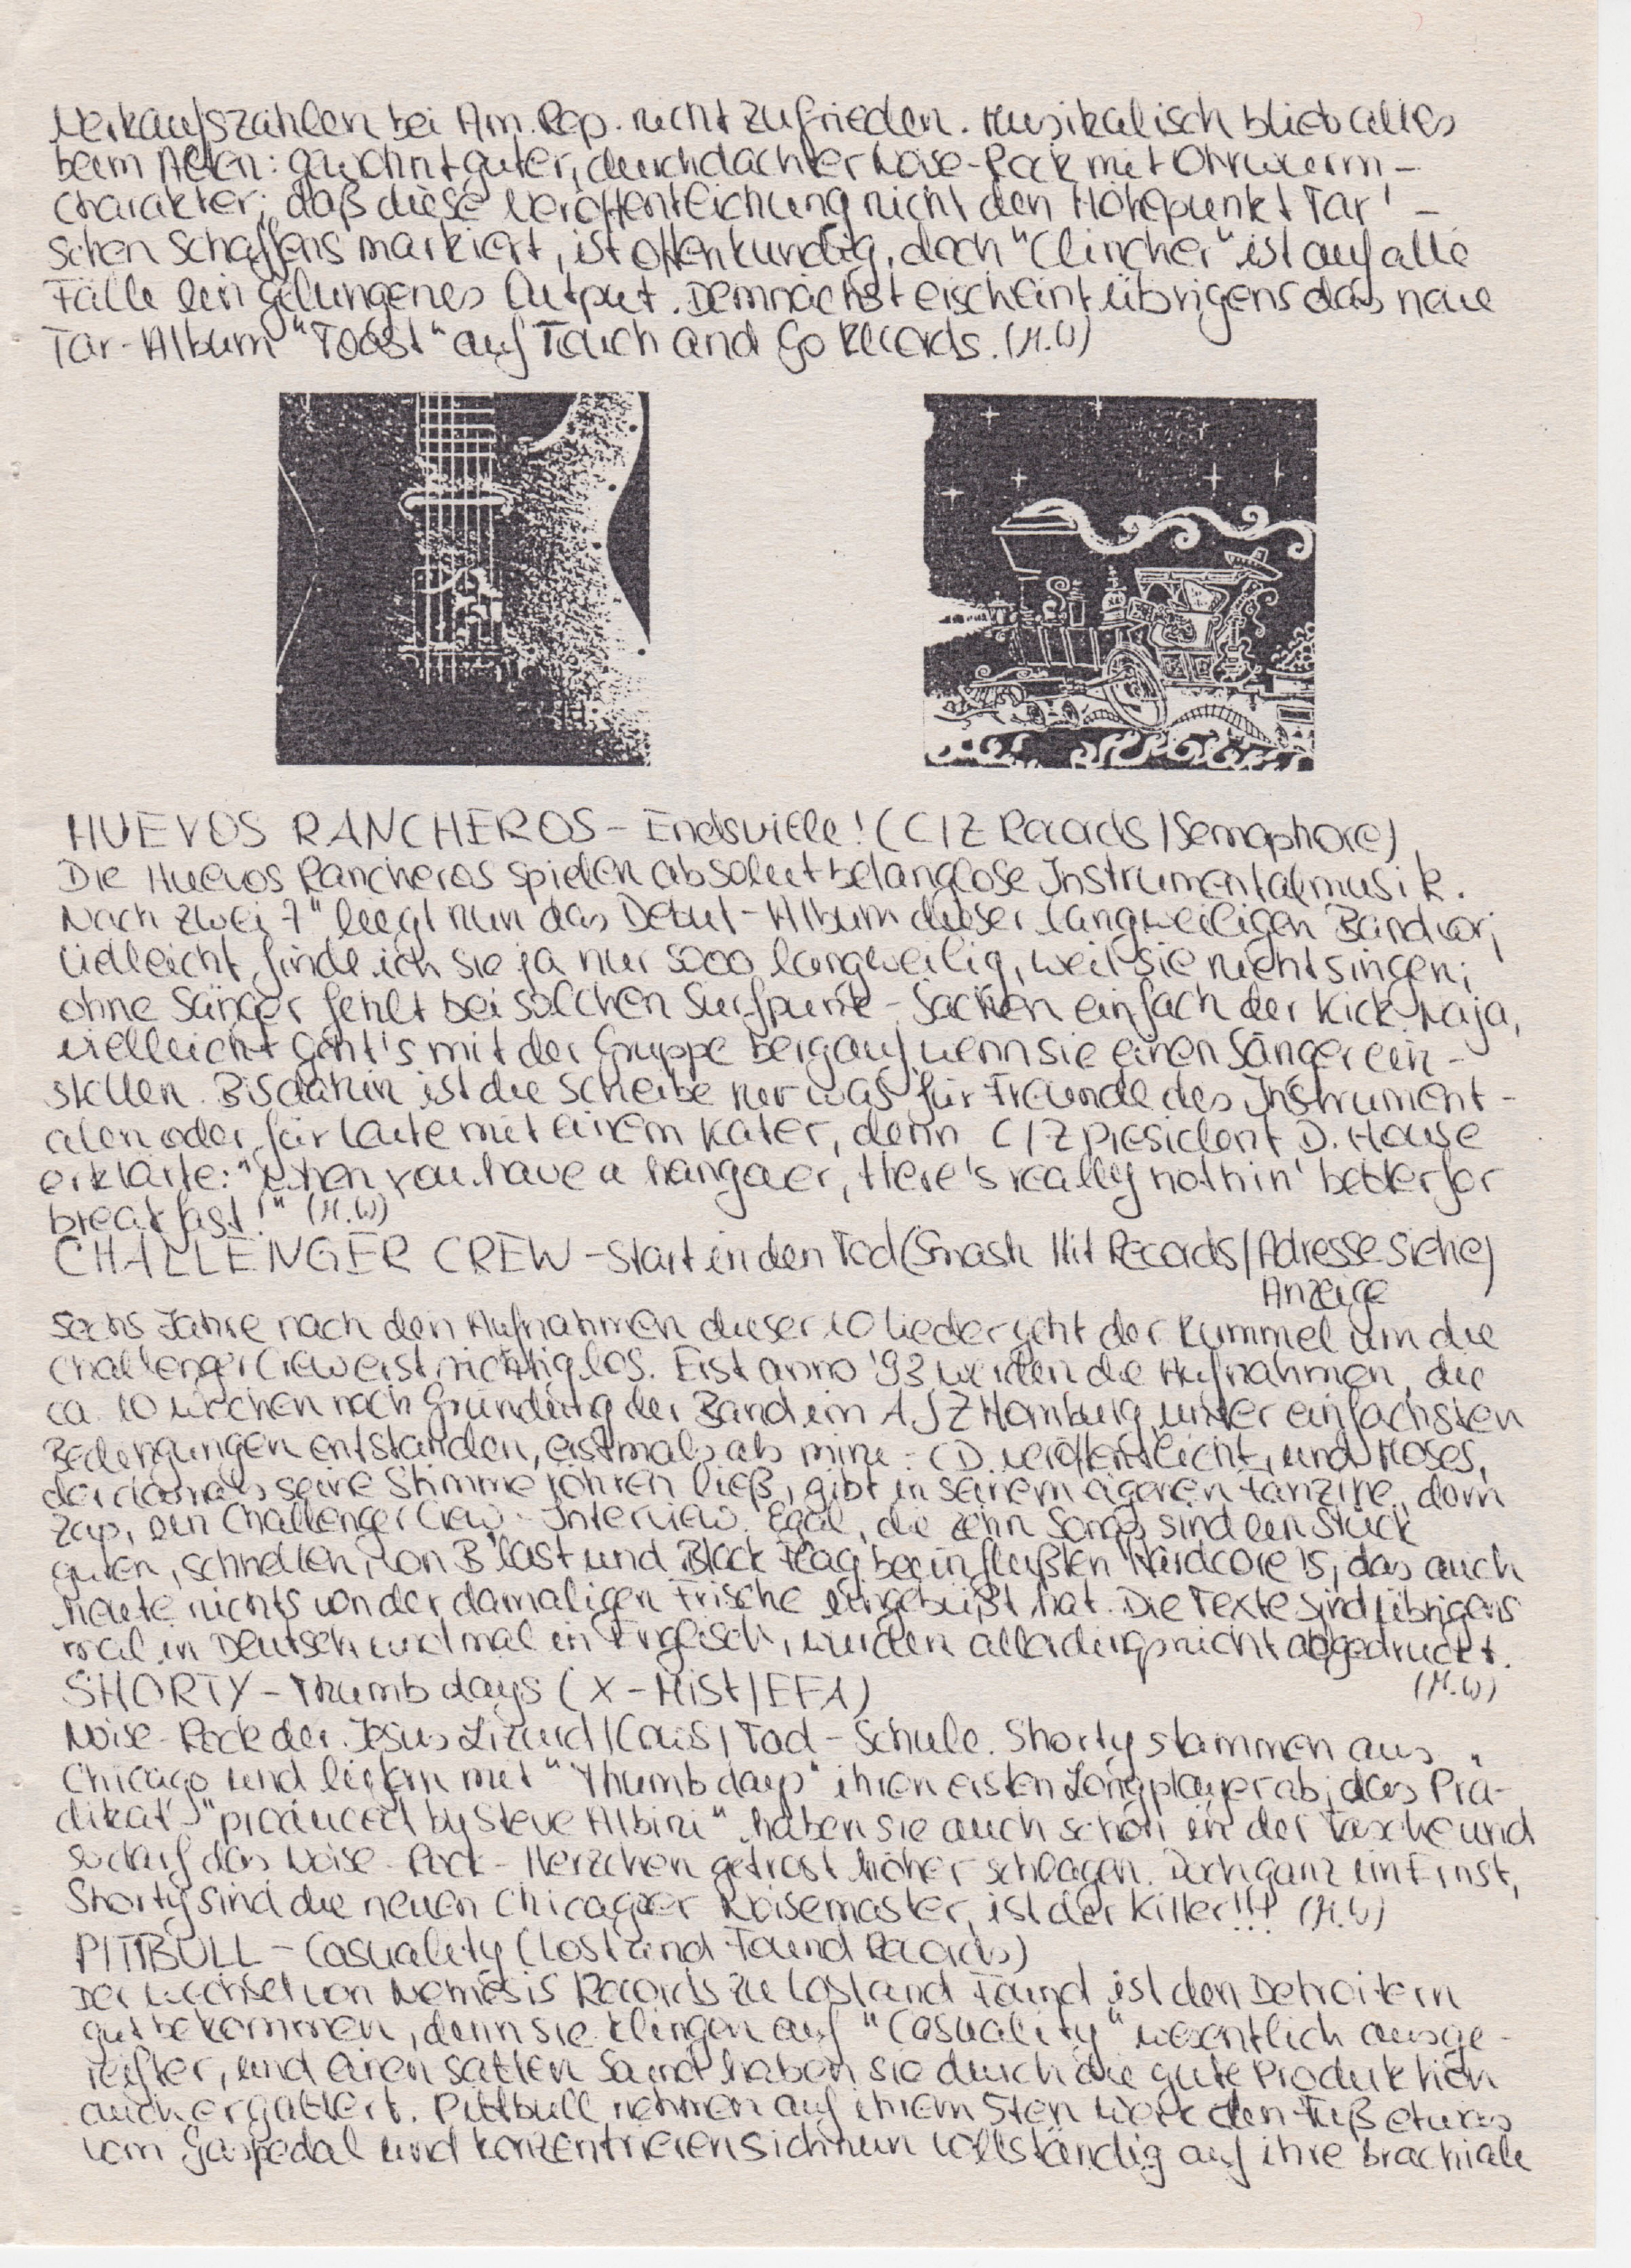 Verkaufszahlen bei Am.Rep. nicht zufrieden. Musikalisch blieb alles
beim Alten: gewohnt guter, durchdachter Noise-Rock mit Ohrwurm-
Charakter; daß diese Veröffentlichung nicht den Höhepunkt Tar'-
schen Schaffens markiert, ist offenkundig, doch "Clincher" ist auf alle
Fälle ein gelungenes Output. Demnächst erscheint übrigens das neue
Tar-Album "Toast" auf Touch and Go Records. (M.W)
HUEVOS RANCHEROS - Endsville! (C/Z Records/Semaphore)
Die Huevos Rancheros spielen absolut belanglose Instrumentalmusik.
Nach zwei 7" liegt nun das Debut-Album dieser langweiligen Band vor;
vielleicht finde ich sie ja nur sooo langweilig, weil sie nicht singen;
ohne Sänger fehlt bei solchen Surfpunk-Sachen einfach der Kick. Naja,
vielleicht geht's mit der Gruppe bergauf, wenn sie einen Sänger ein-
stellen. Bis dahin ist die Scheibe nur was für Freunde des Instrument-
alen oder für Leute mit einem Kater, denn C/Z president D. House
erklärte: "When you have a hangover, there's really nothin' better for
breakfast!" (M.W)
CHALLENGER CREW - Start in den Tod (Smash Hit Records/Adresse siehe)
Anzeige
Sechs Jahre nach den Aufnahmen dieser 10 Lieder geht der Rummel um die
Challenger Crew erst richtig los. Erst anno '93 werden die Aufnahmen, die
ca. 10 Wochen nach Gründung der Band im AJZ Homburg unter einfachsten
Bedingungen entstanden, erstmals als mini-CD veröffentlicht, und Moses,
der damals seine Stimme röhren ließ, gibt in seinem eigenen Fanzine, dem
Zap, ein Challenger Crew-Interview. Egal, die zehn Songs sind ein Stück
guten, schnellen, von B'last und Black Flag beeinflußten Hardcore's, das auch
heute nichts von der damaligen Frische eingebüßt hat. Die Texte sind übrigens
mal in Deutsch und mal in Englisch, wurden allerdings nicht abgedruckt.
(M.W)
SHORTY - Thumb days (X-Mist/EFA)
Noise-Rock der Jesus Lizard/Cows/Tad-Schule. Shorty stammen aus
Chicago und liefern mit "Thumb days" ihren ersten Longplayer ab; das Prä-
dikat "produced by Steve Albini" haben sie auch schon in der Tasche und
so darf das Noise-Rock-Herzchen getrost höher schlagen. Doch ganz im Ernst,
Shorty sind die neuen Chicagoer Noisemaster, ist der Killer!!! (M.W)
PITTBULL - Casuality (Lost and Found Records)
Der Wechsel von Nemesis Records zu Lost and Found ist den Detroitern
gut bekommen, denn sie klingen auf "Casuality" wesentlich ausge-
reifter, und einen satten Sound haben sie durch die gute Produktion
auch ergattert. Pittbull nehmen auf ihrem 5ten Werk den Fuß etwas
vom Gaspedal und konzentrieren sich nun vollständig auf ihre brachiale